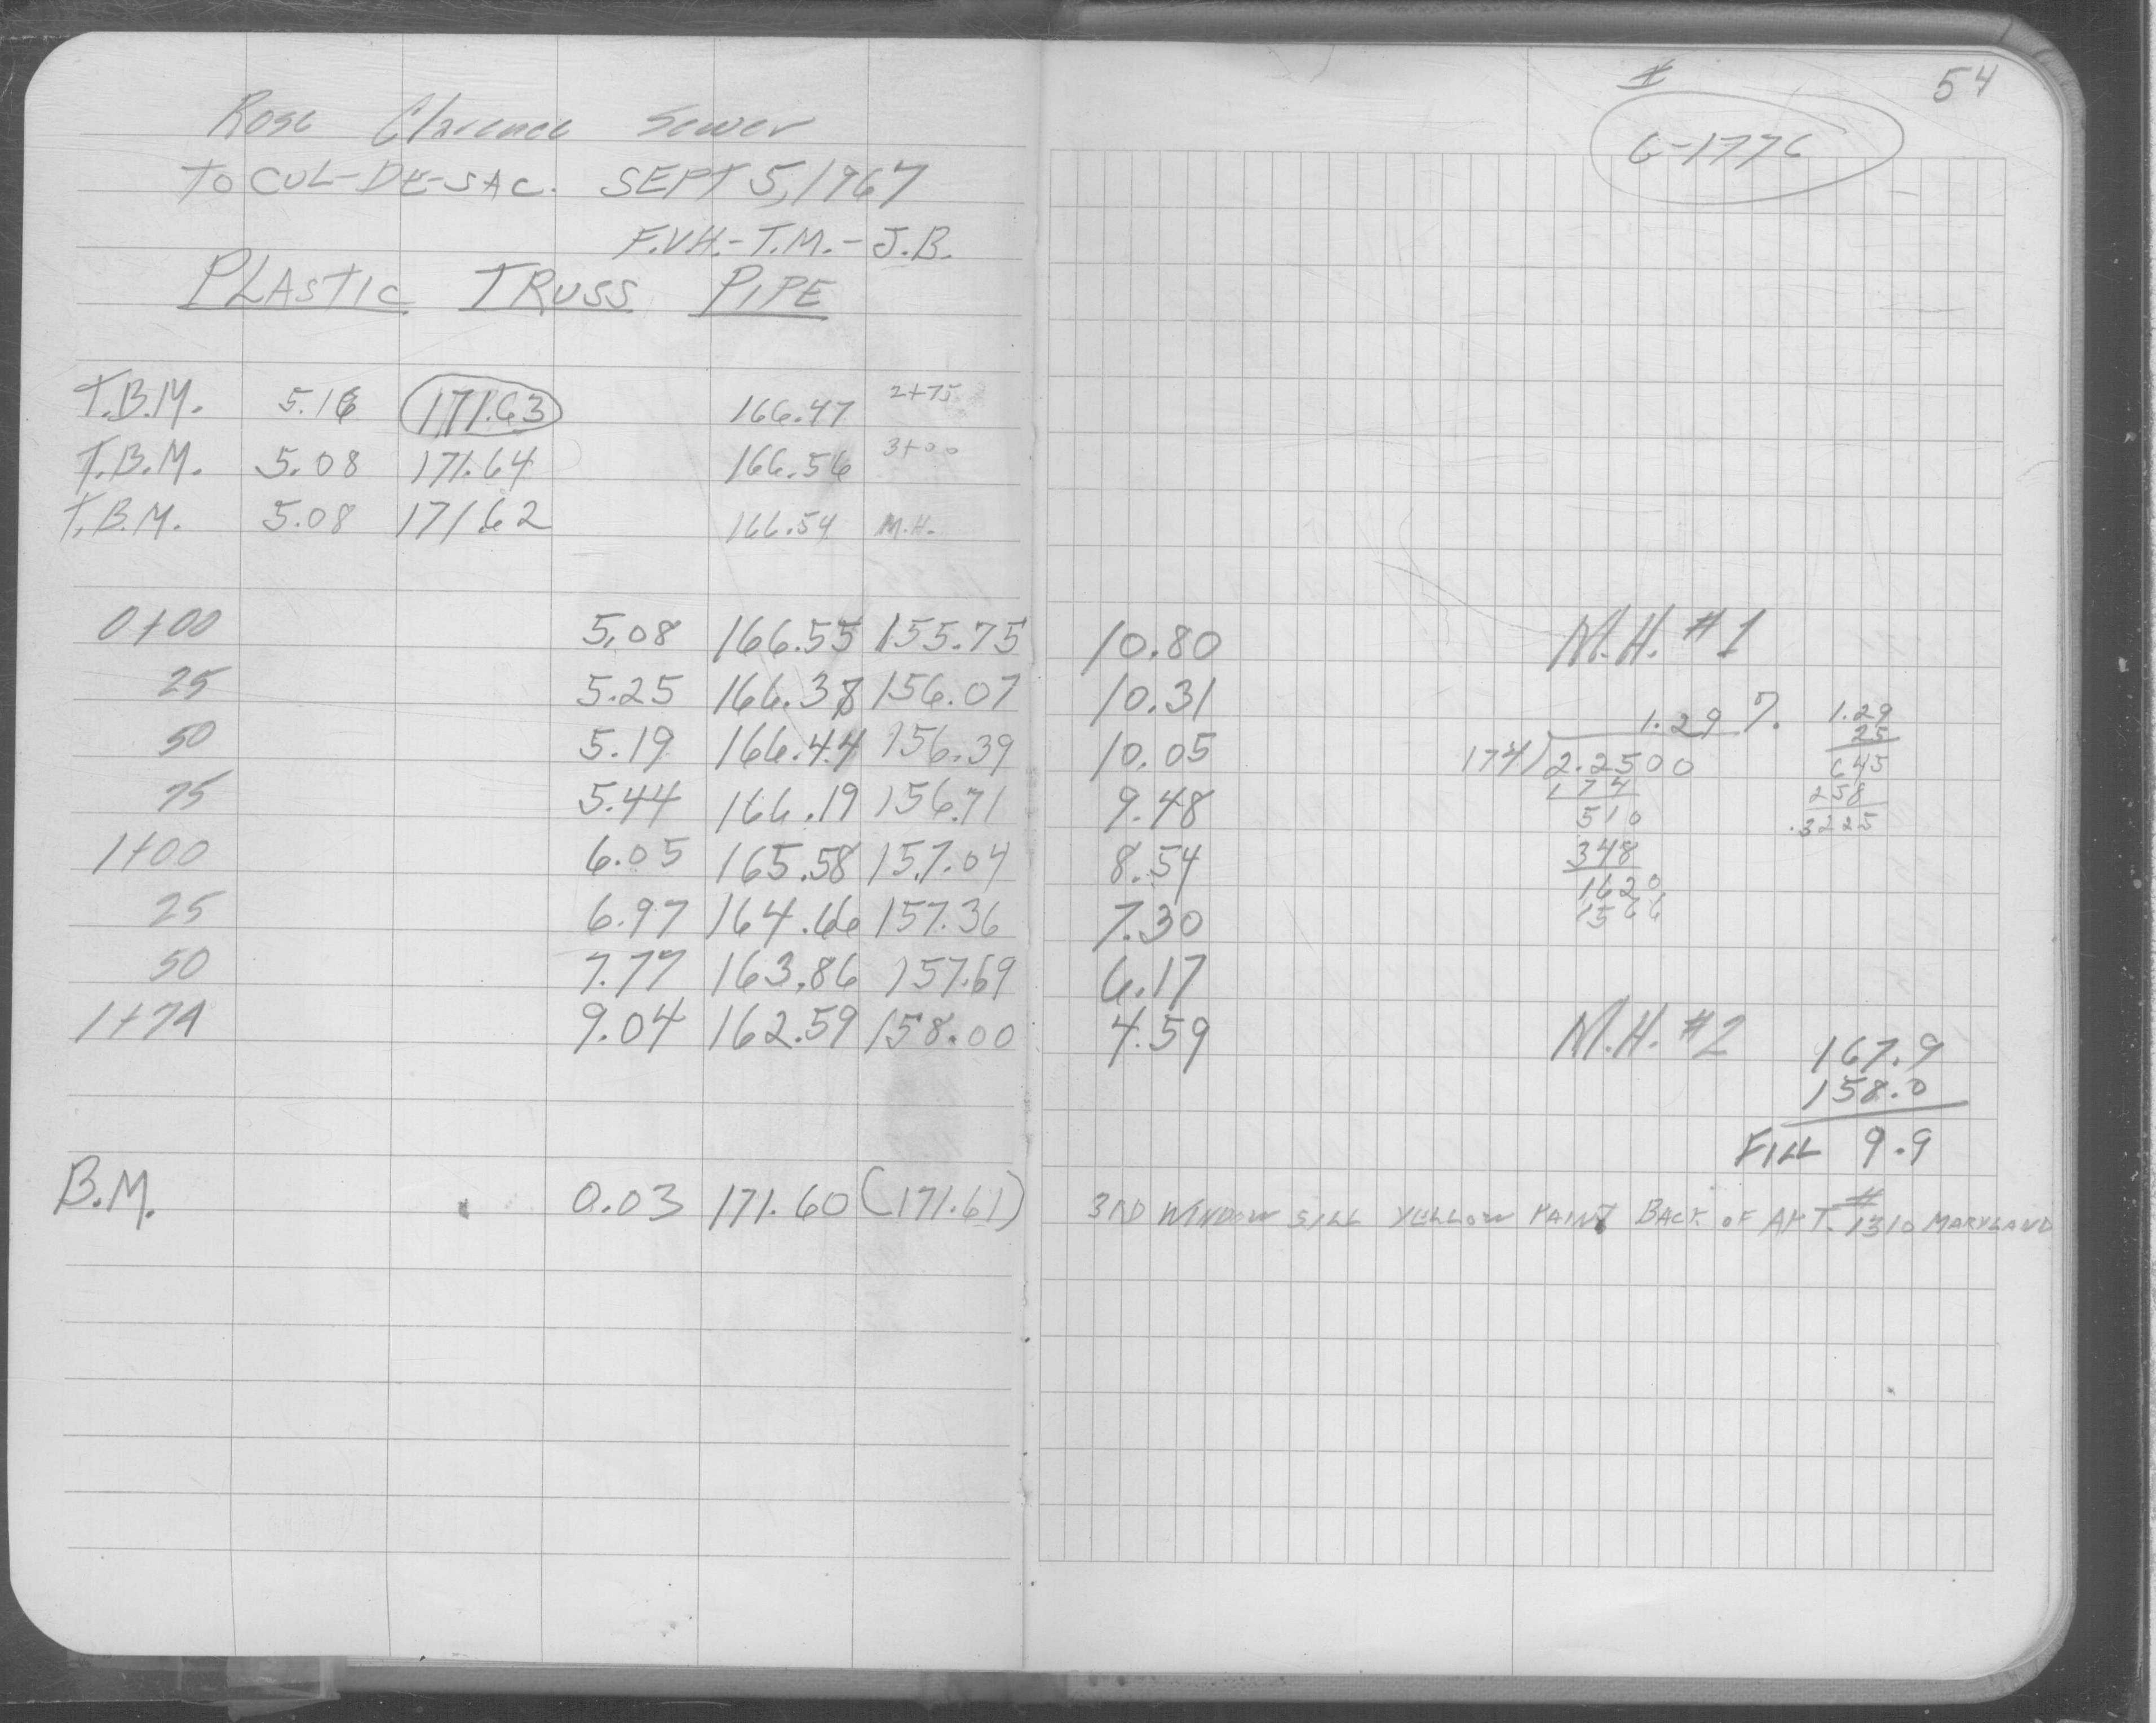 Rose Clarence Sewer
TO CUL-DE-SAC. SEPT 5, 1967
F.V.H.-T.M.-J.B.
PLASTIC TRUSS PIPE
T.B.M. 5.16 171.63 166.47 2+75
T.B.M. 5.08 171.64 166.56 3+00
T.B.M. 5.08 171.62 166.54 M.H.
0+00 5.08 166.55 155.75
25 5.25 166.38 156.07
50 5.19 166.44 156.39
75 5.44 166.19 156.71
1+00 6.05 165.58 157.04
25 6.97 164.66 157.36
50 7.77 163.86 157.69
1+74 9.04 162.59 158.00
B.M. 0.03 171.60 (171.61)
# 54
G-1776
10.80 M.H. #1
10.31
10.05
9.48
8.54
7.30
6.17
4.59 M.H. #2
1.29 %
174)2.2500
174
510
348
1620
1566
1.29
25
645
258
.3225
167.9
158.0
FILL 9.9
3RD WINDOW SILL YELLOW PAINT BACK OF APT. #1310 MARYLAND